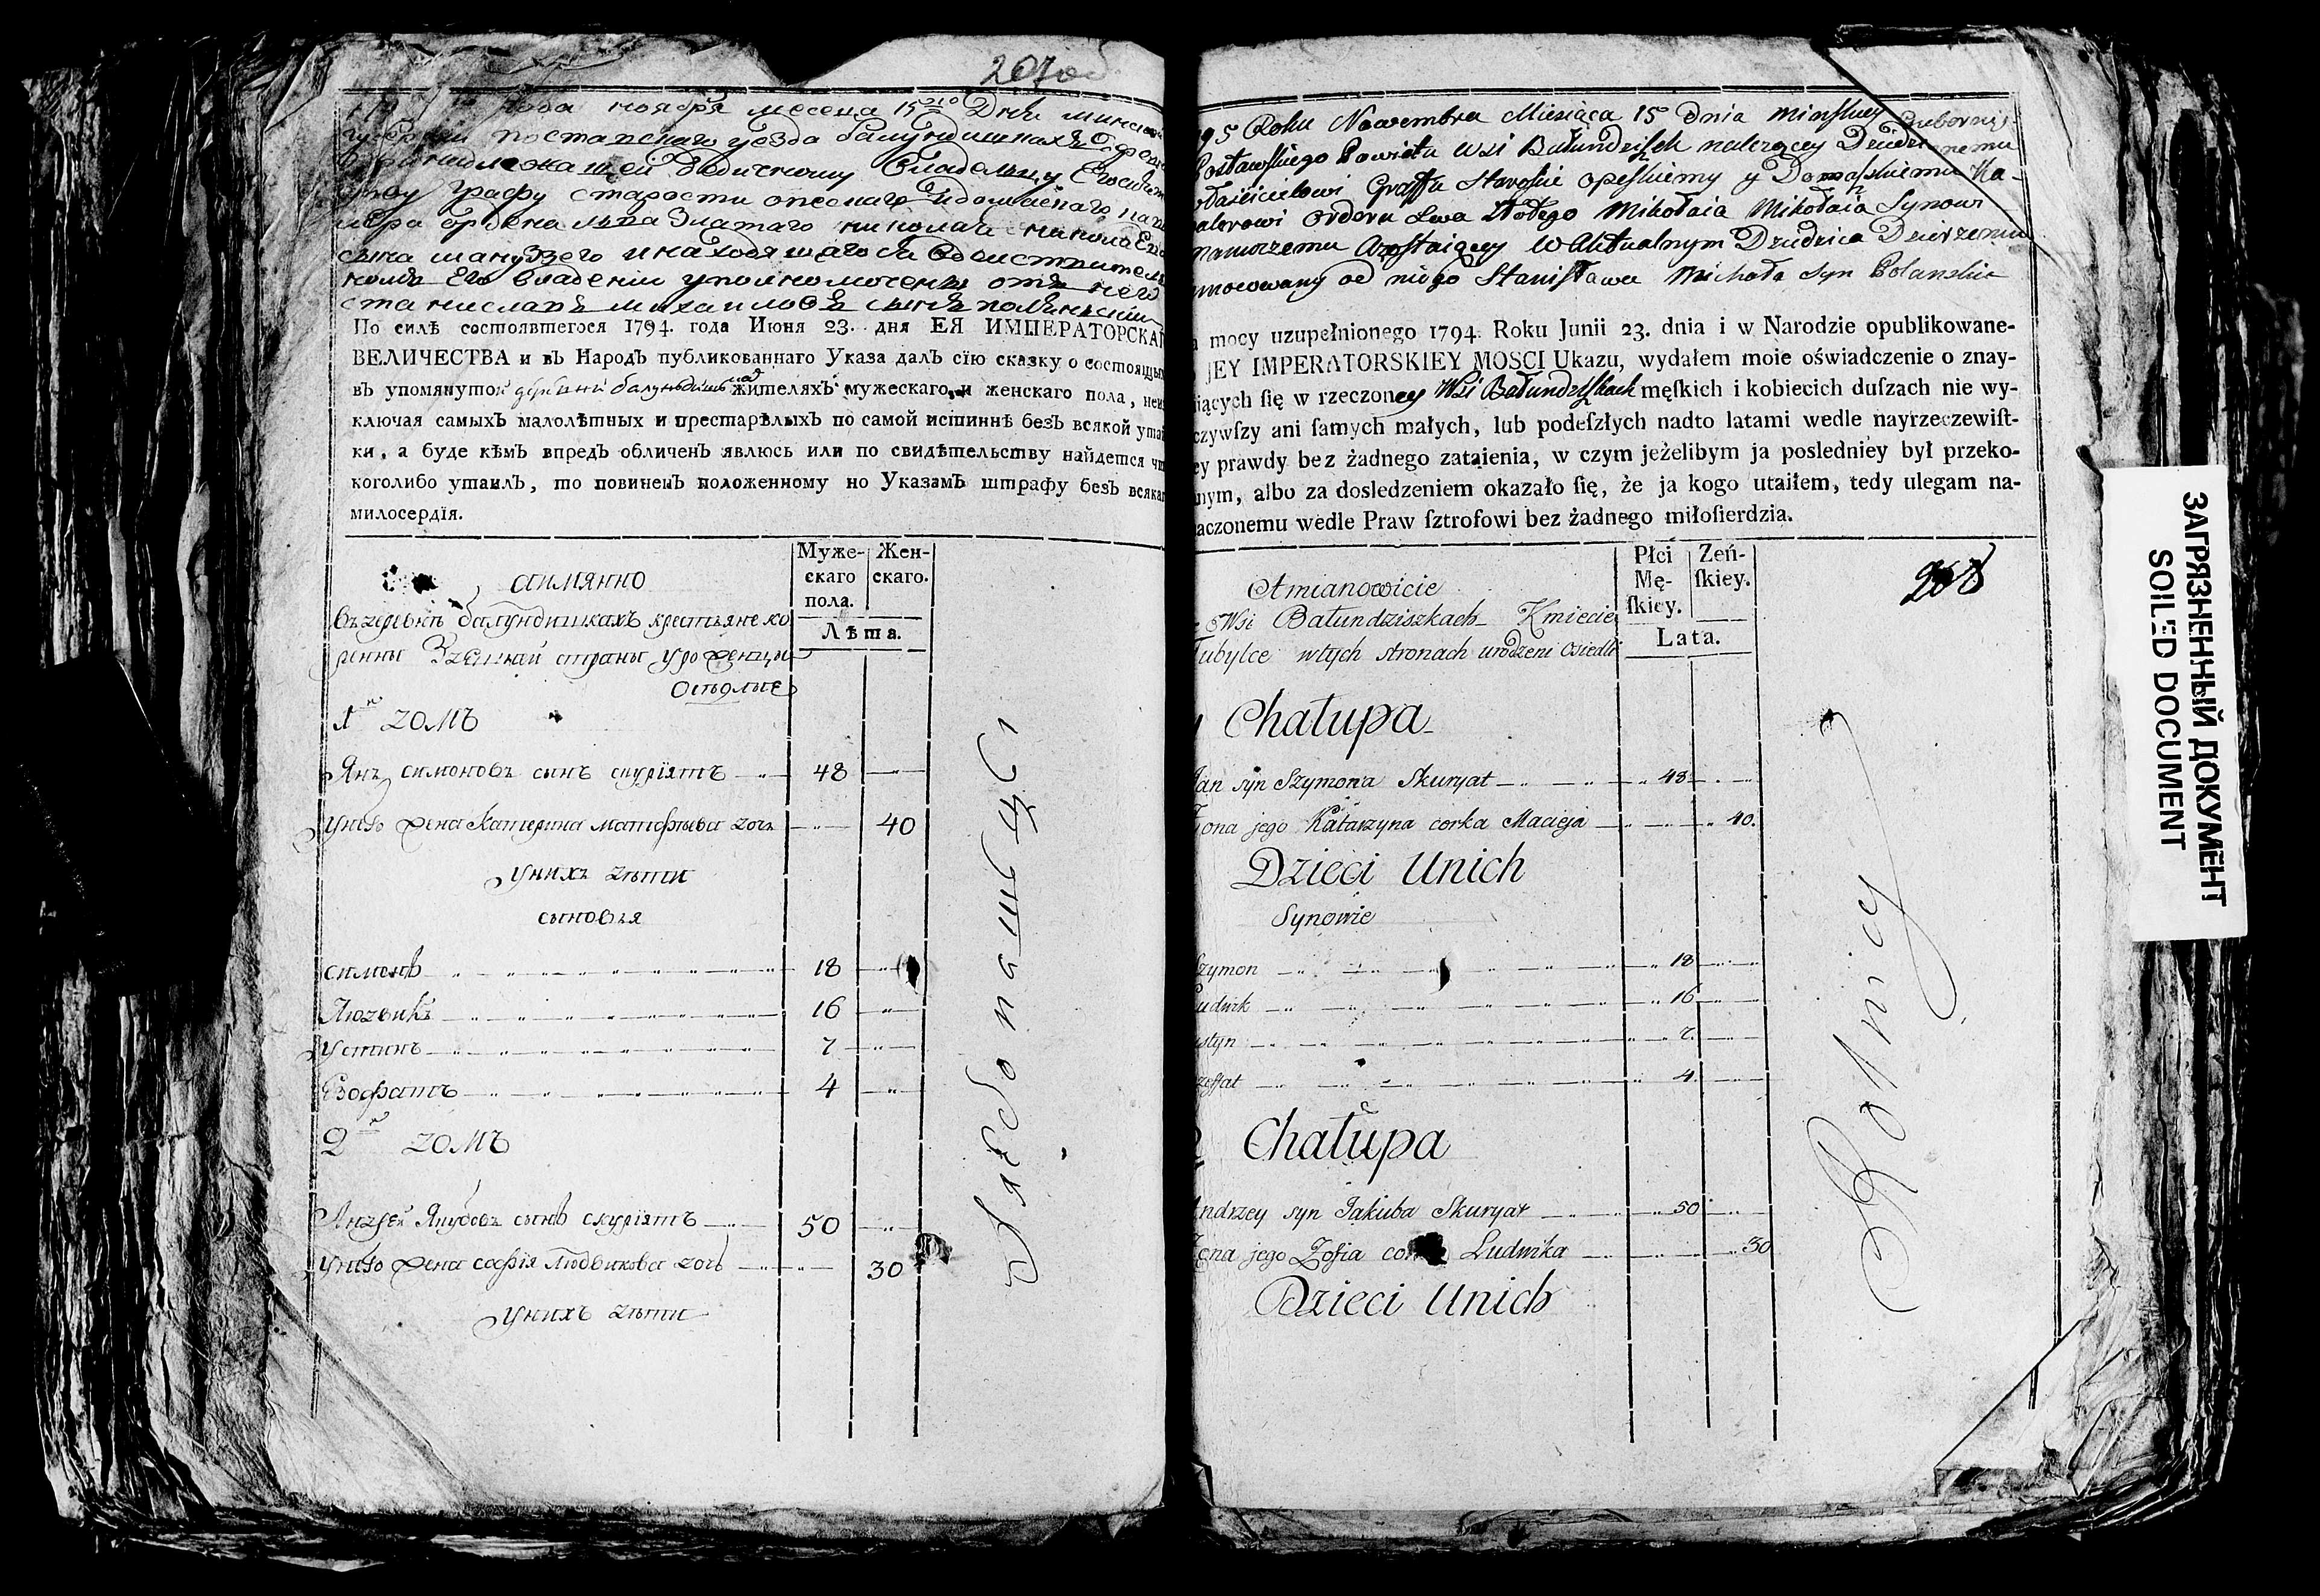 207 об
года ноября месеца 15го Дня минской
губернии поставскаго уезда балундишках в Деревне
принадлежащей Ведичному Владельцу Его сиятель
ству Графу старости опескаго и домашскаго кава
лера ордена льва Златаго николая николаева
сына мануззего и находящагося в действитель
номъ его владении уполномоченны отъ него
станиславъ михаиловъ сынъ полянский
По силѣ состоявшегося 1794. года Июня 23. дня ЕЯ ИМПЕРАТОРСКАГ
ВЕЛИЧЕСТВА и въ Народъ публикованнаго Указа далъ сїю сказку о состоящ
въ упомянутой деревни балундишках жителяхъ мужескаго и женскаго пола, неис
ключая самыхъ малолѣтныхъ и престарѣлыхъ по самой истиннѣ безъ всякой утай
ки, а буде кѣмъ впредъ обличенъ явлюсь или по свидѣтельству найдется чт
коголибо утаилъ, то повиненъ положенному по Указамъ штрафу безъ всяка
милосердїя.
Муже- Жен-
скаго скаго.
пола.
Лѣта.
аимянно
въ деревнѣ балундишкахъ крестьяне ко
ренны Здешнай страны уроженцы
Оседлые
1й домъ
Янъ симоновъ сынъ скурїятъ 48
у него жена катерина матфѣева дочь 40
у нихъ дѣти
сыновья
симонъ 18
Людвикъ 16
устинъ 7
Езофатъ 4
2й домъ
Андрей Якубовъ сынъ скурїятъ 50
у него жена софїя людвикова дочь 30
у нихъ дѣти
95 Roku Nowembra Miesiąca 15 dnia Minskiey Gubernij
Postawskiego Powiatu Wsi Bałundziszek należącey Dziedzicznemu
właścicielowi Graffu Staroście Opeskiemy y Domaszkiemu Ka-
walerowi Orderu Lwa Złotego Mikołaia Mikołaia Synowi
Manuzemu Zostaiącey w Aktualnym Dziedzica Dzierżeniu
umocowany od niego Stanisława Michała Syn Polanskie
a mocy uzupełnionego 1794. Roku Junii 23. dnia i w Narodzie opublikowane-
JEY IMPERATORSKIEY MOSCI Ukazu, wydałem moie oświadczenie o znay-
iących ſię w rzeczoney Wsi Bałundziszkach męſkich i kobiecich duſzach nie wy-
czywſzy ani ſamych małych, lub podeſzłych nadto latami wedle nayrzeczewiſt-
ey prawdy bez żadnego zataienia, w czym jeżelibym ja posledniey był przeko-
nym, albo za dosledzeniem okazało ſię, że ja kogo utaiłem, tedy ulegam na-
aczonemu wedle Praw ſztrofowi bez żadnego miłoſierdzia.
Płci Zeń-
Mę- ſkiey.
ſkiey.
Lata.
208
Amianowicie
Wsi Bałundziszkach Kmiecie
Tubylce w tych stronach urodzeni Osiedli
1 Chałupa
Jan syn Szymona Skuryat 48
Żona jego Katarzyna corka Macieja 40.
Dzieci Unich
Synowie
Szymon 18
Ludwik 16
ustyn 7.
zeffat 4.
2 Chałupa
Andrzey syn Jakuba Skuryat 50
Żona jego Zofia corka Ludwika 30
Dzieci Unich
Rolnicy
ЗАГРЯЗНЕННЫЙ ДОКУМЕНТ
SOILED DOCUMENT